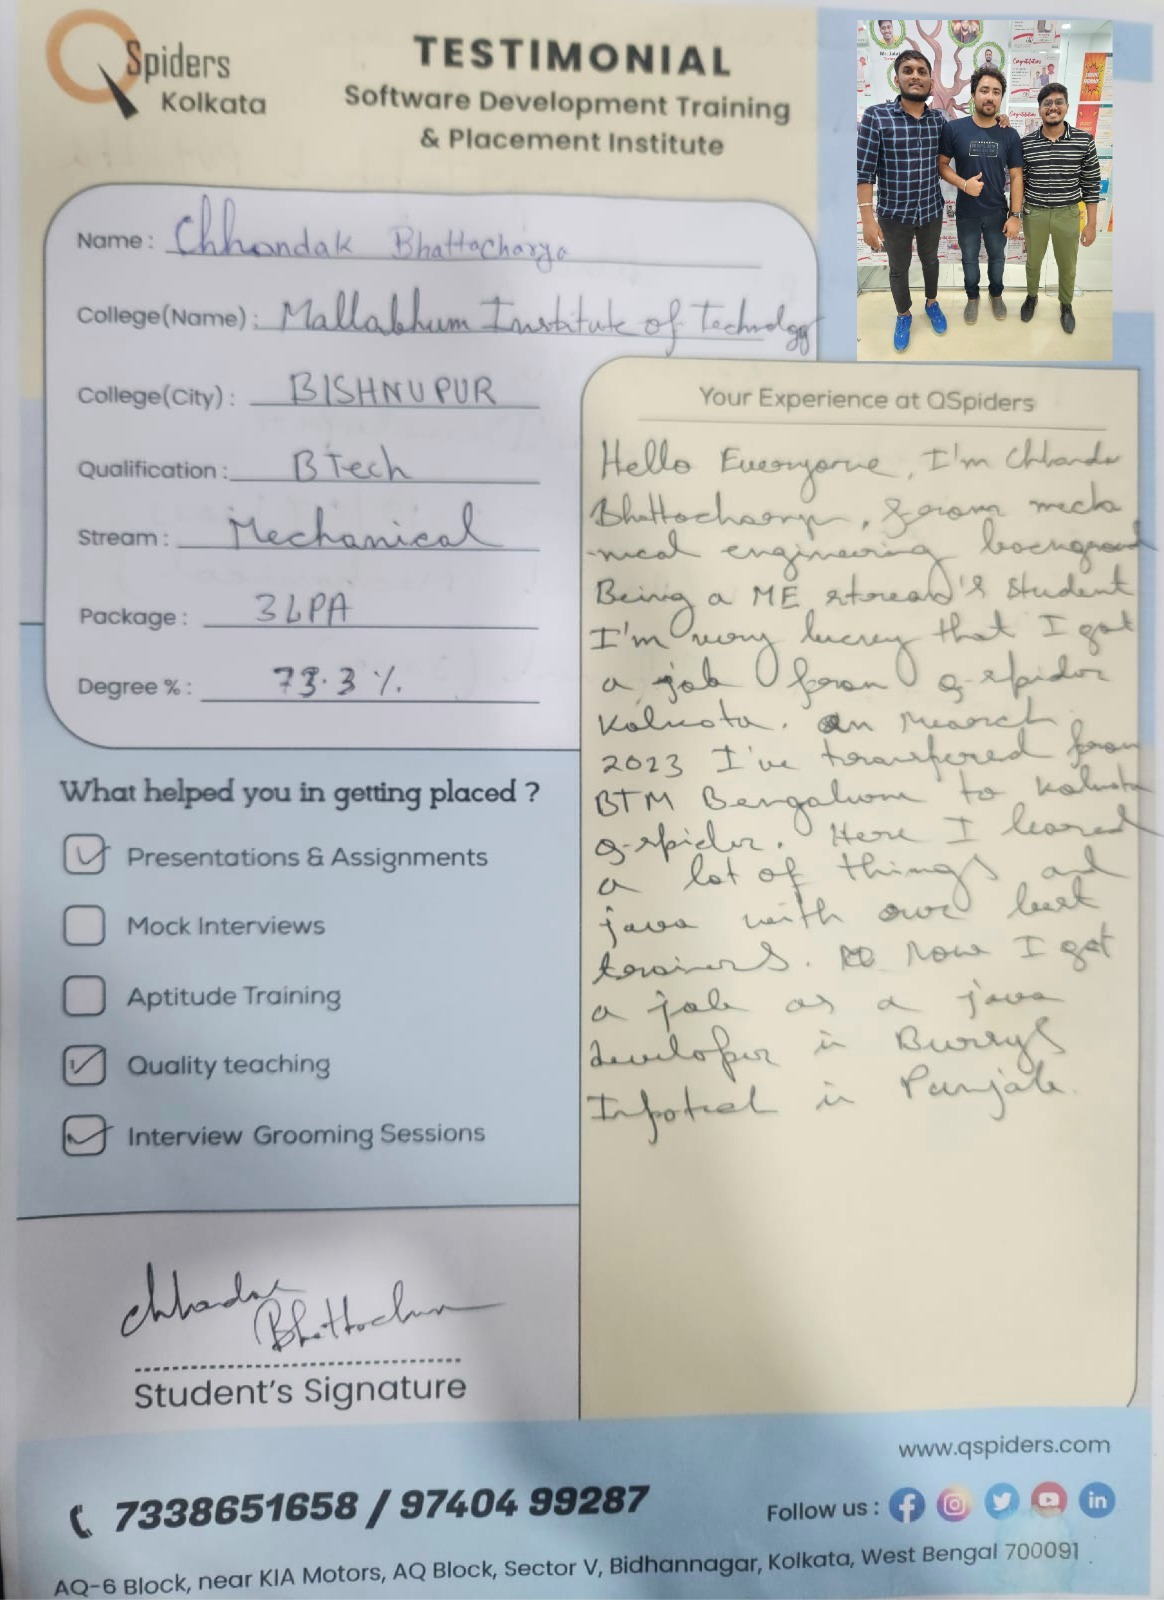 QSpiders
Kolkata
TESTIMONIAL
Software Development Training
& Placement Institute
Name : Chhandak Bhattacharya
College(Name) : Mallabhum Institute of Technology
College(City) : BISHNUPUR
Qualification : BTech
Stream : Mechanical
Package : 3 LPA
Degree % : 73.3 %.
What helped you in getting placed ?
Presentations & Assignments
Mock Interviews
Aptitude Training
Quality teaching
Interview Grooming Sessions
Chhandak
Bhattacharya
Student's Signature
Your Experience at QSpiders
Hello Everyone, I'm Chhandak
Bhattacharya, from mecha
-nical engineering background
Being a ME stream's student
I'm very luckey that I got
a job from q-spider
Kolkata. On March
2023 I've transfered from
BTM Bengaluru to Kolkata
q-spider. Here I learned
a lot of things and
java with our best
trainers. Now I get
a job as a java
developer in Burrys
Infotech in Punjab.
www.qspiders.com
7338651658 / 97404 99287
Follow us :
AQ-6 Block, near KIA Motors, AQ Block, Sector V, Bidhannagar, Kolkata, West Bengal 700091